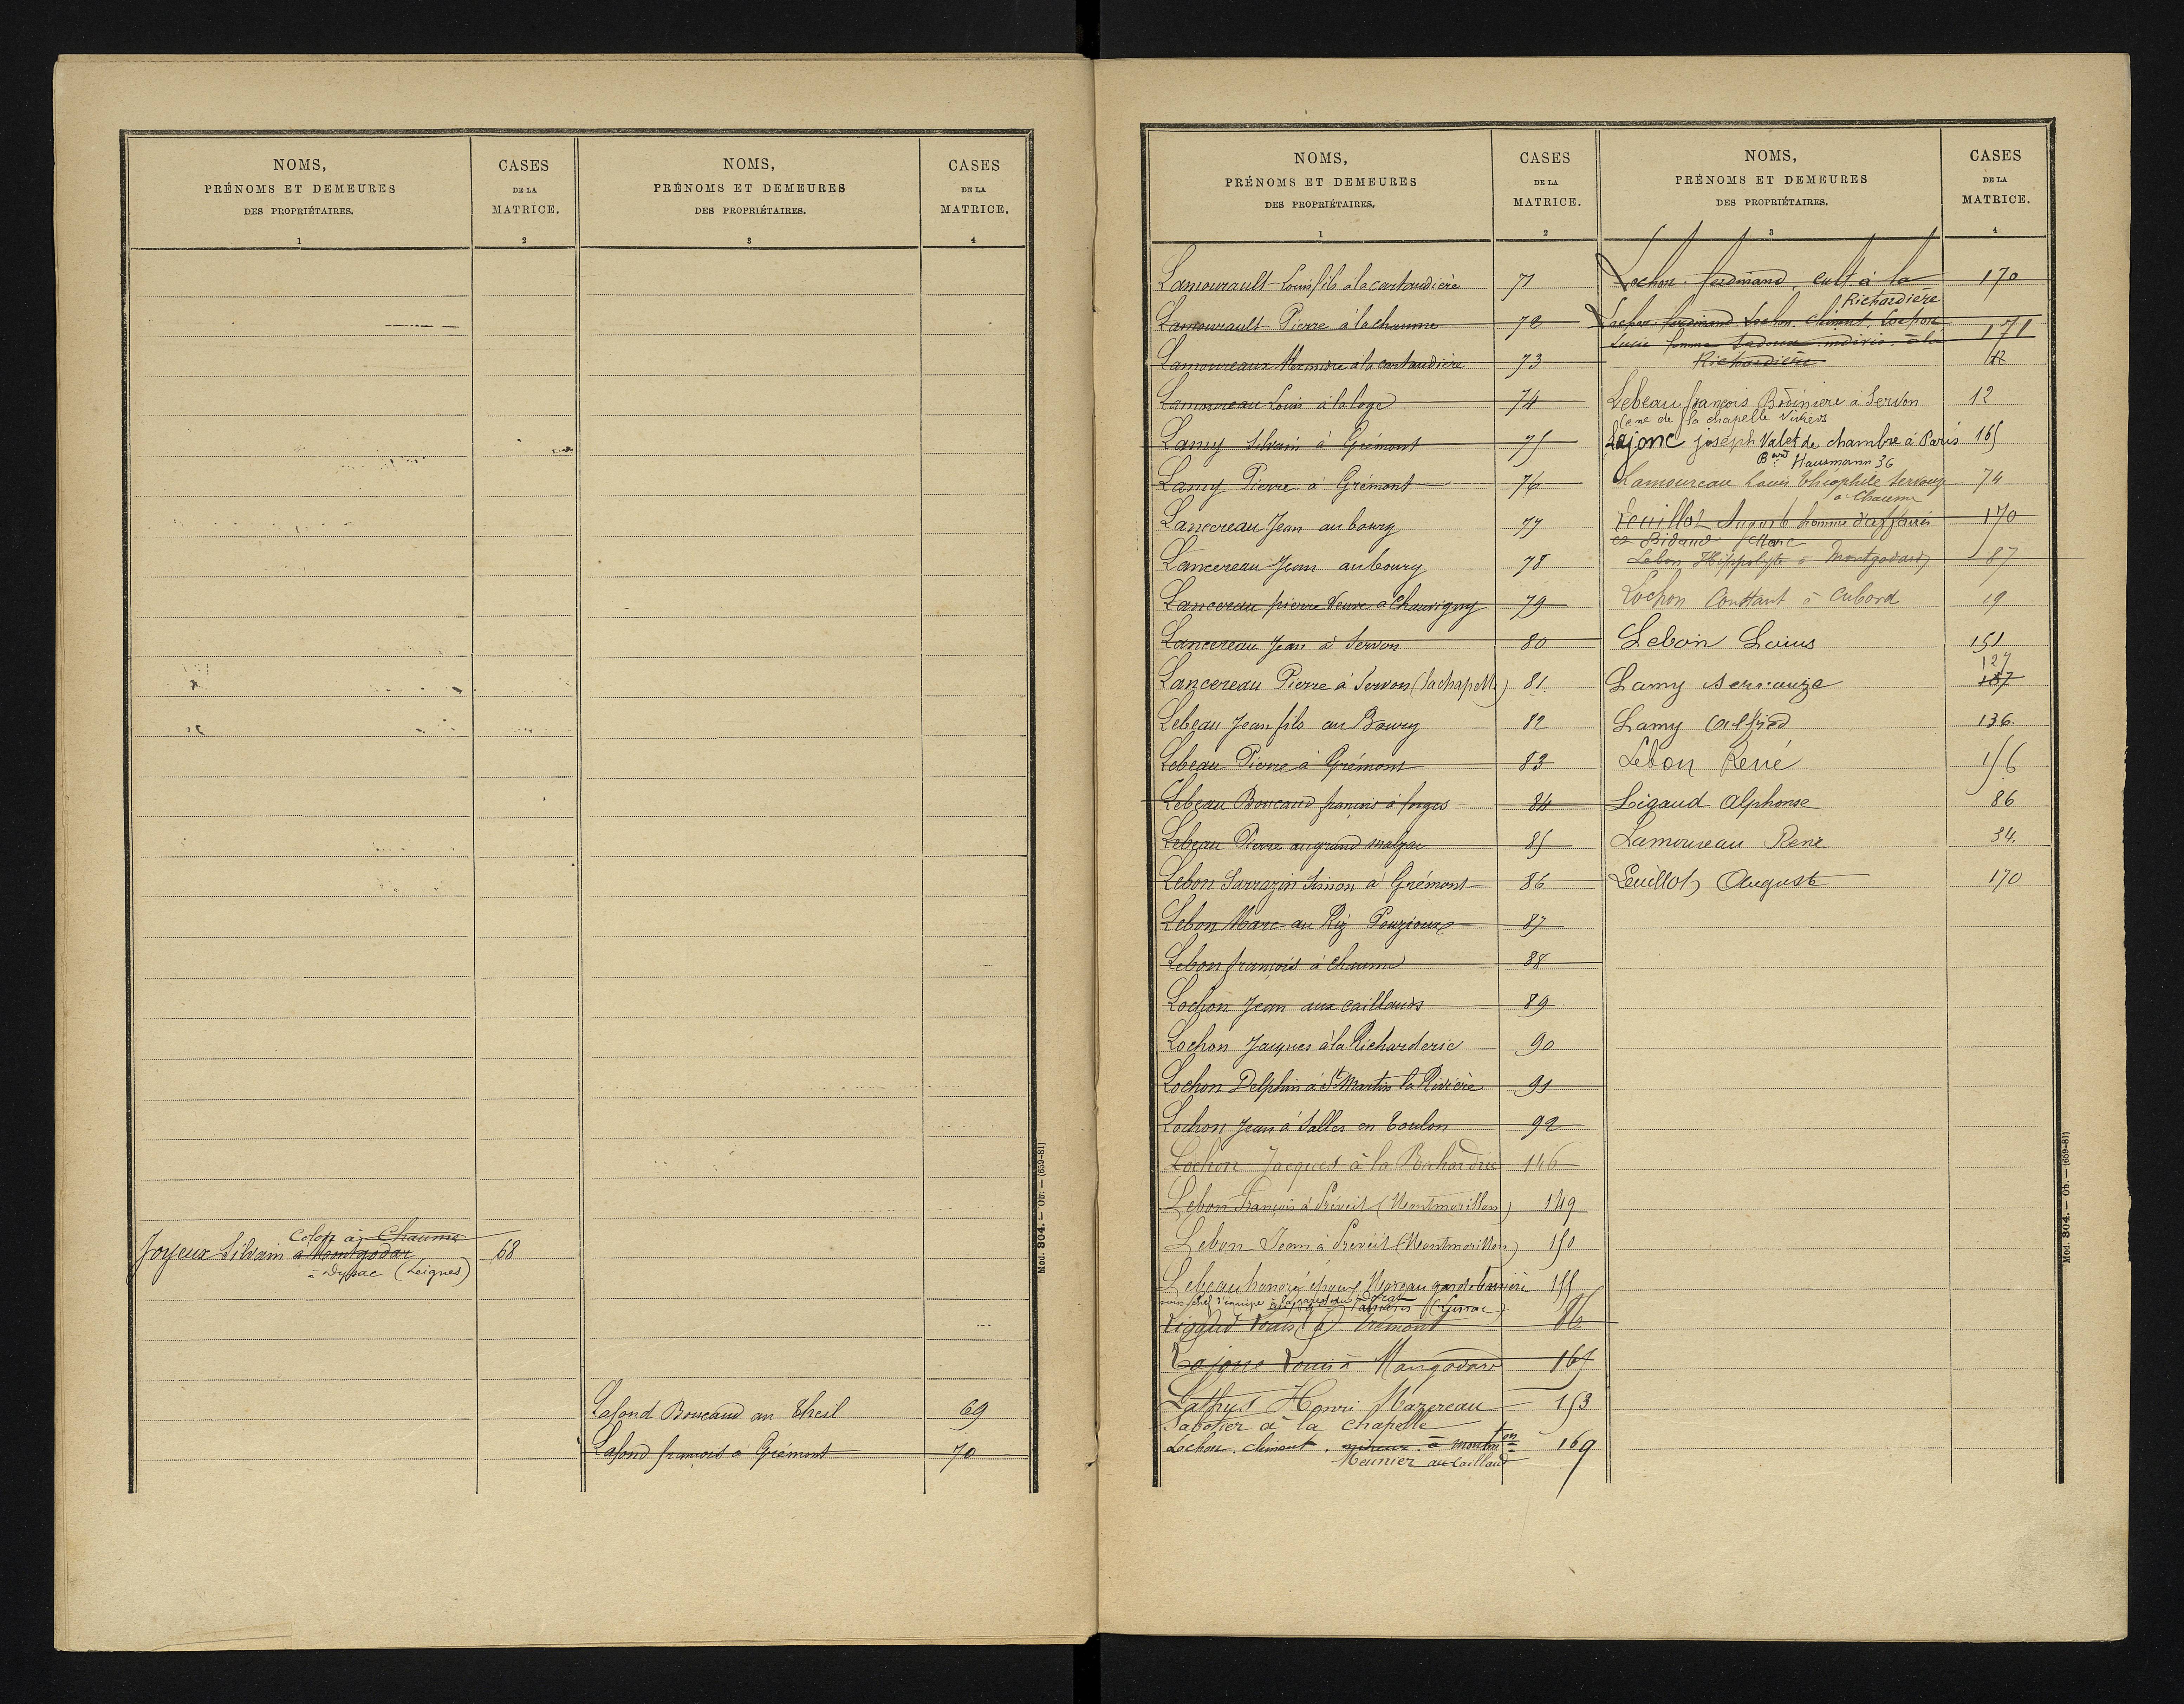 NOMS,
PRÉNOMS ET DEMEURES
DES PROPRIÉTAIRES.
1
CASES
DE LA
MATRICE.
2
NOMS,
PRÉNOMS ET DEMEURES
DES PROPRIÉTAIRES.
3
CASES
DE LA
MATRICE.
4
Colon à Chaume
Joyeux Silvain à Montgodar 68
à Dyssac (Leignes)
Lafond Boucaud au Theil 69
Lafond françois à Grémont 70
Mod. 804. — Ob. — (659-81)
NOMS,
PRÉNOMS ET DEMEURES
DES PROPRIÉTAIRES.
1
CASES
DE LA
MATRICE.
2
Lamourault Louis fils à la cartaudière 71
Lamourault Pierre à la chaume 72
Lamoureaux à la cartaudière 73
Lamoureau Louis à la loge 74
Lamy Silvain à Grémont 75
Lamy Pierre à Grémont 76
Lancereau Jean au bourg 77
Lancereau Jean au bourg 78
Lancereau pierre Veuve à Chauvigny 79
Lancereau Jean à Servon 80
Lancereau Pierre à Servon (lachapelle) 81
Lebeau Jean fils au Bourg 82
Lebeau Pierre à Grémont 83
Lebeau Boucaud françois à forges 84
Lebeau Pierre au grand malpac 85
Lebon Sarrazin Simon à Grémont 86
Lebon Marc au Riz Pouzioux 87
Lebon françois à Chaume 88
Lochon Jean aux caillauds 89
Lochon Jacques à la Richarderie 90
Lochon Delphin à St Martin la Rivière 91
Lochon Jean à Salles en Toulon 92
Lochon Jacques à la Richardrie 146
Lebon François à Préveil (Montmorillon) 149
Lebon Jean à Preveil (Montmorillon) 150
Lebeau honoré époux Moreau garde barrière 155
chef d'équipe
Liggud Louis (à) Grémont 86
Lajone Louis à Mongodard 165
Lathus Henri Mazereau 153
Sabotier à la chapelle
Lochon. clément. mineur. à montm^on 169
Meunier au Caillaud
NOMS,
PRÉNOMS ET DEMEURES
DES PROPRIÉTAIRES.
3
CASES
DE LA
MATRICE.
4
Lochon. ferdinand, cult. à la 170
Richardière
Lochon. ferdinand. Lochon. Clément. Lochon
Lucie femme Ladoux indivis. à la 171
Richardière 12
Lebeau françois Brédinière à Servon 12
Cne de la chapelle Viviers
Lajone joseph Valet de chambre à Paris 165
Bard Hausmann 36
Lamoureau Louis théophile Servouze 74
à Chaume
Leuillot Auguste homme d'affaires 170
Lebon Hippolyte à Montgodard 87
Lochon Constant à Cubord 19
Lebon Louis 151
127
Lamy Servouze 187
Lamy Alfred 136.
Lebon René 156
Ligaud Alphonse 86
Lamoureau René 34.
Leuillot Auguste 170
Mod. 804. — Ob. — (659-81)